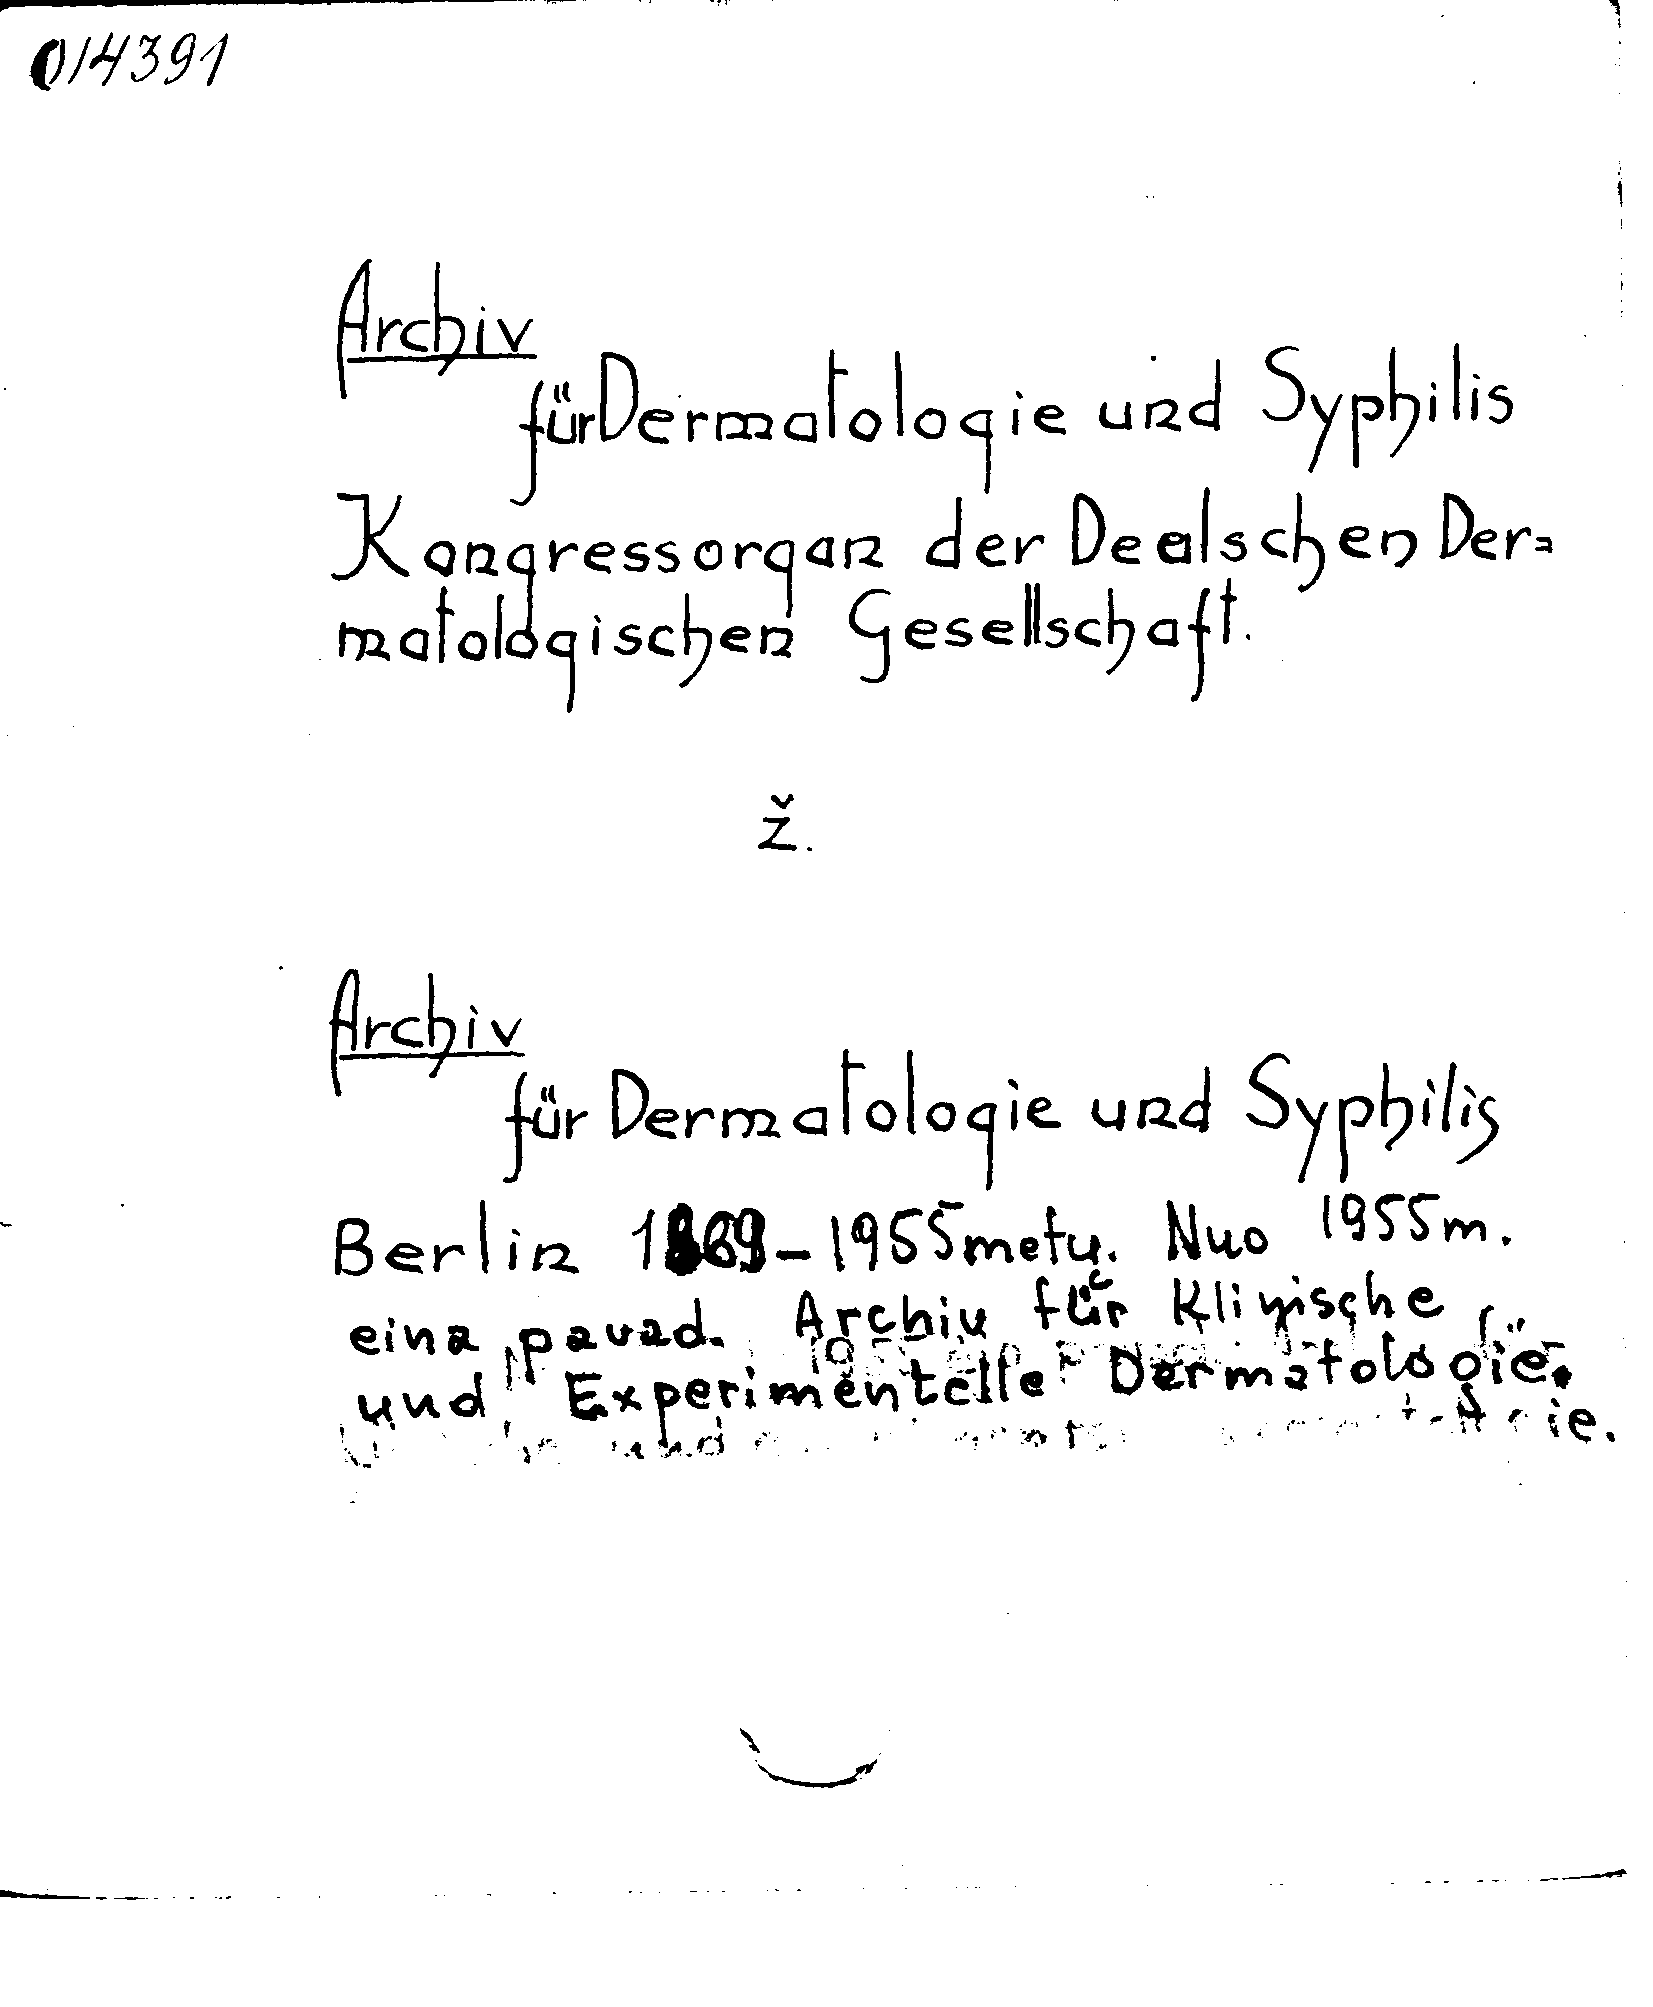 014391
Archiv
für Dermatologie und Syphilis
Kongressorgan der Dealschen Der=
matologischen Gesellschaft.
ž.
Archiv
für Dermatologie und Syphilis
Berlin 1869-1955 metų. Nuo 1955 m.
eina pavad. Archiv für Klinische
und Experimentelle Dermatologie.